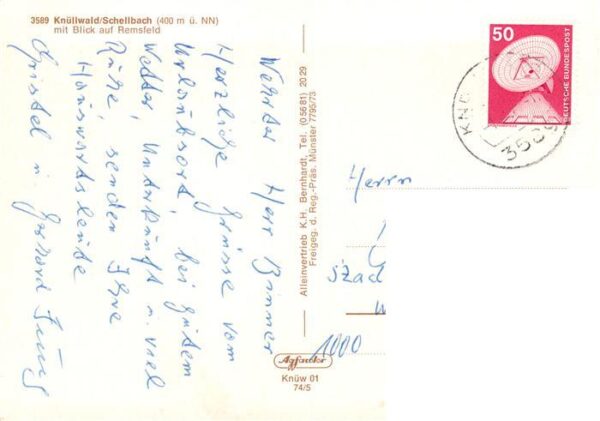 3589 Knüllwald/Schellbach (400 m ü. NN)
mit Blick auf Remsfeld
Wehrter Herr Binner
Herzliche Grüsse vom
Urlaubsort, bei gutem
Wetter, Unterkunft u. viel
Ruhe, senden Ihre
Hauswartsleute
Christel u. Gerhard Jung
Alleinvertrieb K.H. Bernhardt, Tel. (0 56 81) 20 29
Freigeg. d. Reg.-Präs. Münster 7795/73
Agfacolor
Knüw 01
74/5
50
DEUTSCHE BUNDESPOST
KNÜ
3589
Herrn
1000